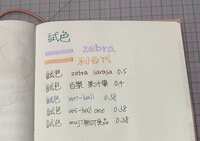 試色
zebra
利百代
試色 zebra sarasa 0.5
試色 白雪 果汁筆 0.4
試色 uni-ball 0.38
試色 uni-ball one 0.38
試色 muji無印良品 0.38